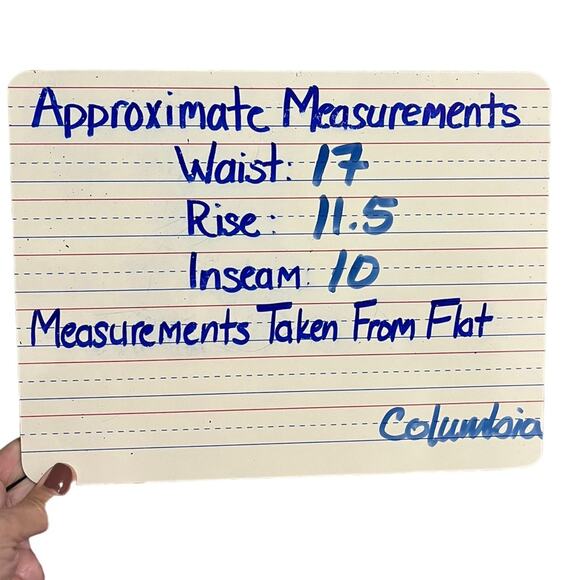 Approximate Measurements
Waist: 17
Rise: 11.5
Inseam: 10
Measurements Taken From Flat
Columbia